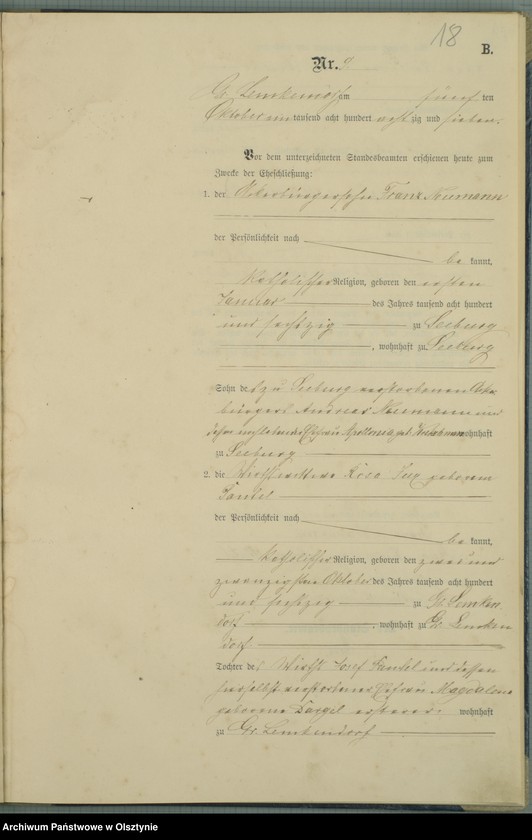 18
B.
Nr. 9
Gr. Lemkendorf am fünften
Oktober eintausend acht hundert achtzig und sieben.
Vor dem unterzeichneten Standesbeamten erschienen heute zum
Zwecke der Eheschließung:
1. der Ackerbürgersohn Franz Neumann
der Persönlichkeit nach
bekannt,
katholischer Religion, geboren den ersten
Januar des Jahres tausend acht hundert
und sechszig zu Seeburg
, wohnhaft zu Seeburg
Sohn des zu Seeburg verstorbenen Acker
bürgers Andreas Neumann und
dessen Ehefrau Apollonia geb. wohnhaft
zu Seeburg
2. die Rosa geborene
der Persönlichkeit nach
bekannt,
katholischer Religion, geboren den zwei und
zwanzigsten Oktober des Jahres tausend acht hundert
und sechszig zu Gr. Lemken
dorf , wohnhaft zu Gr. Lemken
dorf
Tochter des Wirths Josef und dessen
hierselbst verstorbenen Ehefrau Magdalena
geborene wohnhaft
zu Gr. Lemkendorf
Archiwum Państwowe w Olsztynie